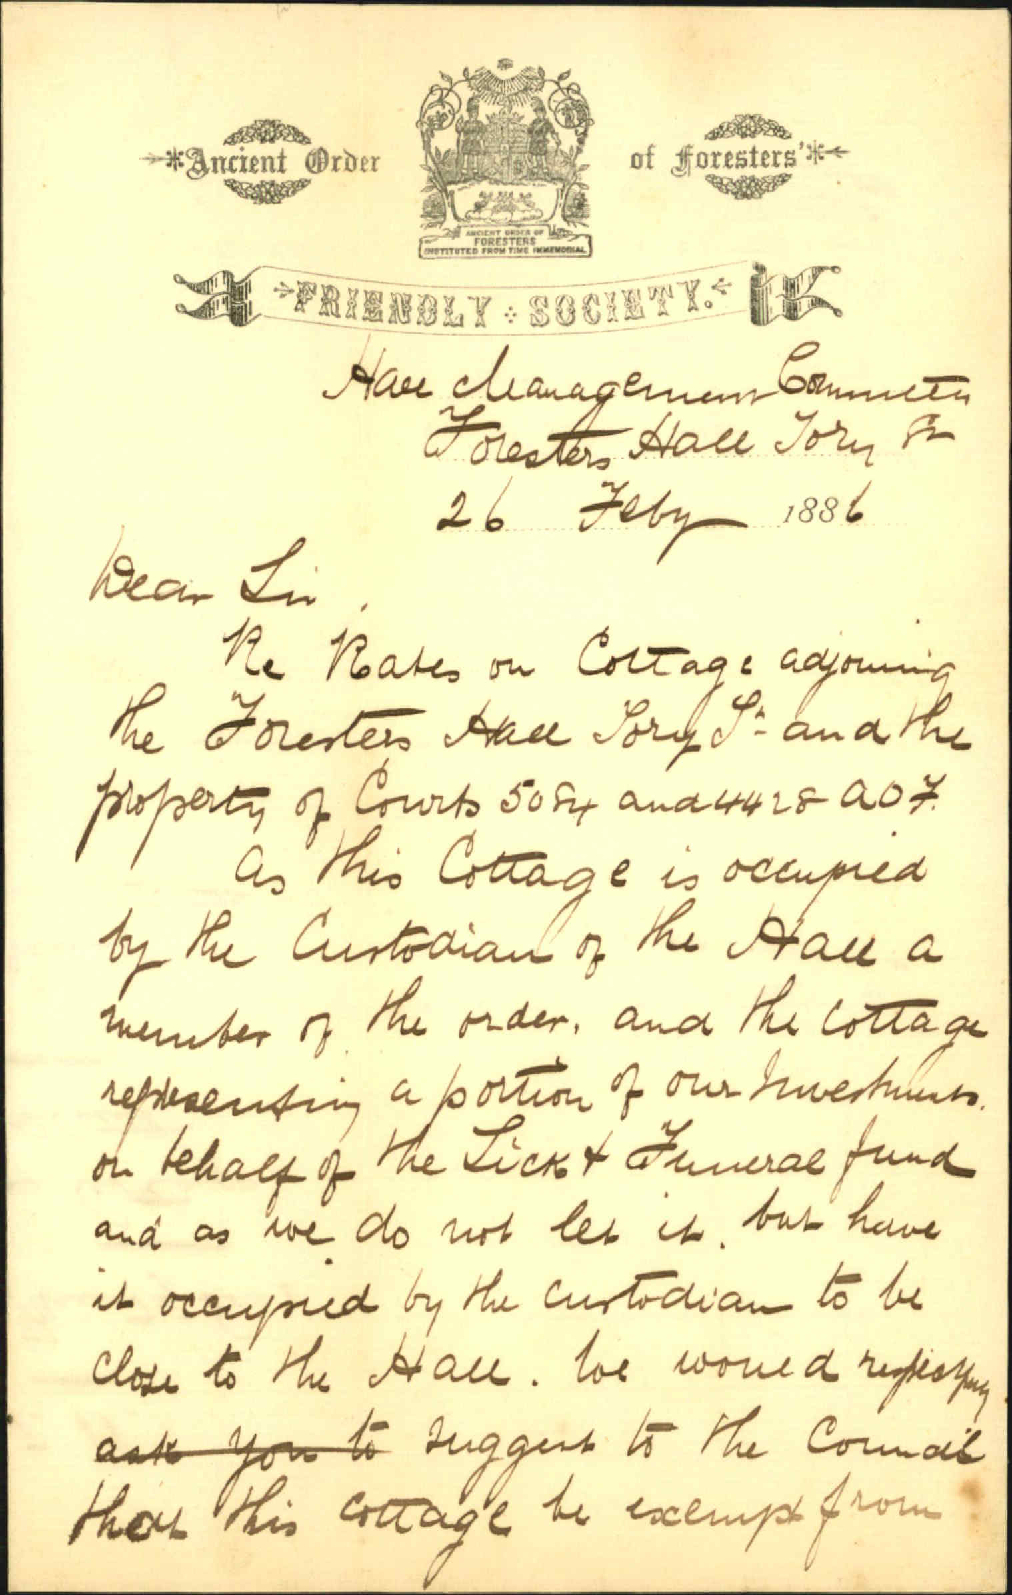 Ancient Order of Foresters'
ANCIENT ORDER OF
FORESTERS
INSTITUTED FROM TIME IMMEMORIAL
FRIENDLY SOCIETY.
Hall Management Committee
Foresters Hall Tory St
26 Feby 1886
Dear Sir,
Re Rates on Cottage adjoining
the Foresters Hall Tory St. and the
property of Courts 5084 and 4428 AOF.
As this Cottage is occupied
by the Custodian of the Hall a
member of the order. and the cottage
representing a portion of our Investments.
on behalf of the Sick & Funeral fund
and as we do not let it. but have
it occupied by the custodian to be
close to the Hall. We would respectfully
ask you to suggest to the Council
that this cottage be exempt from